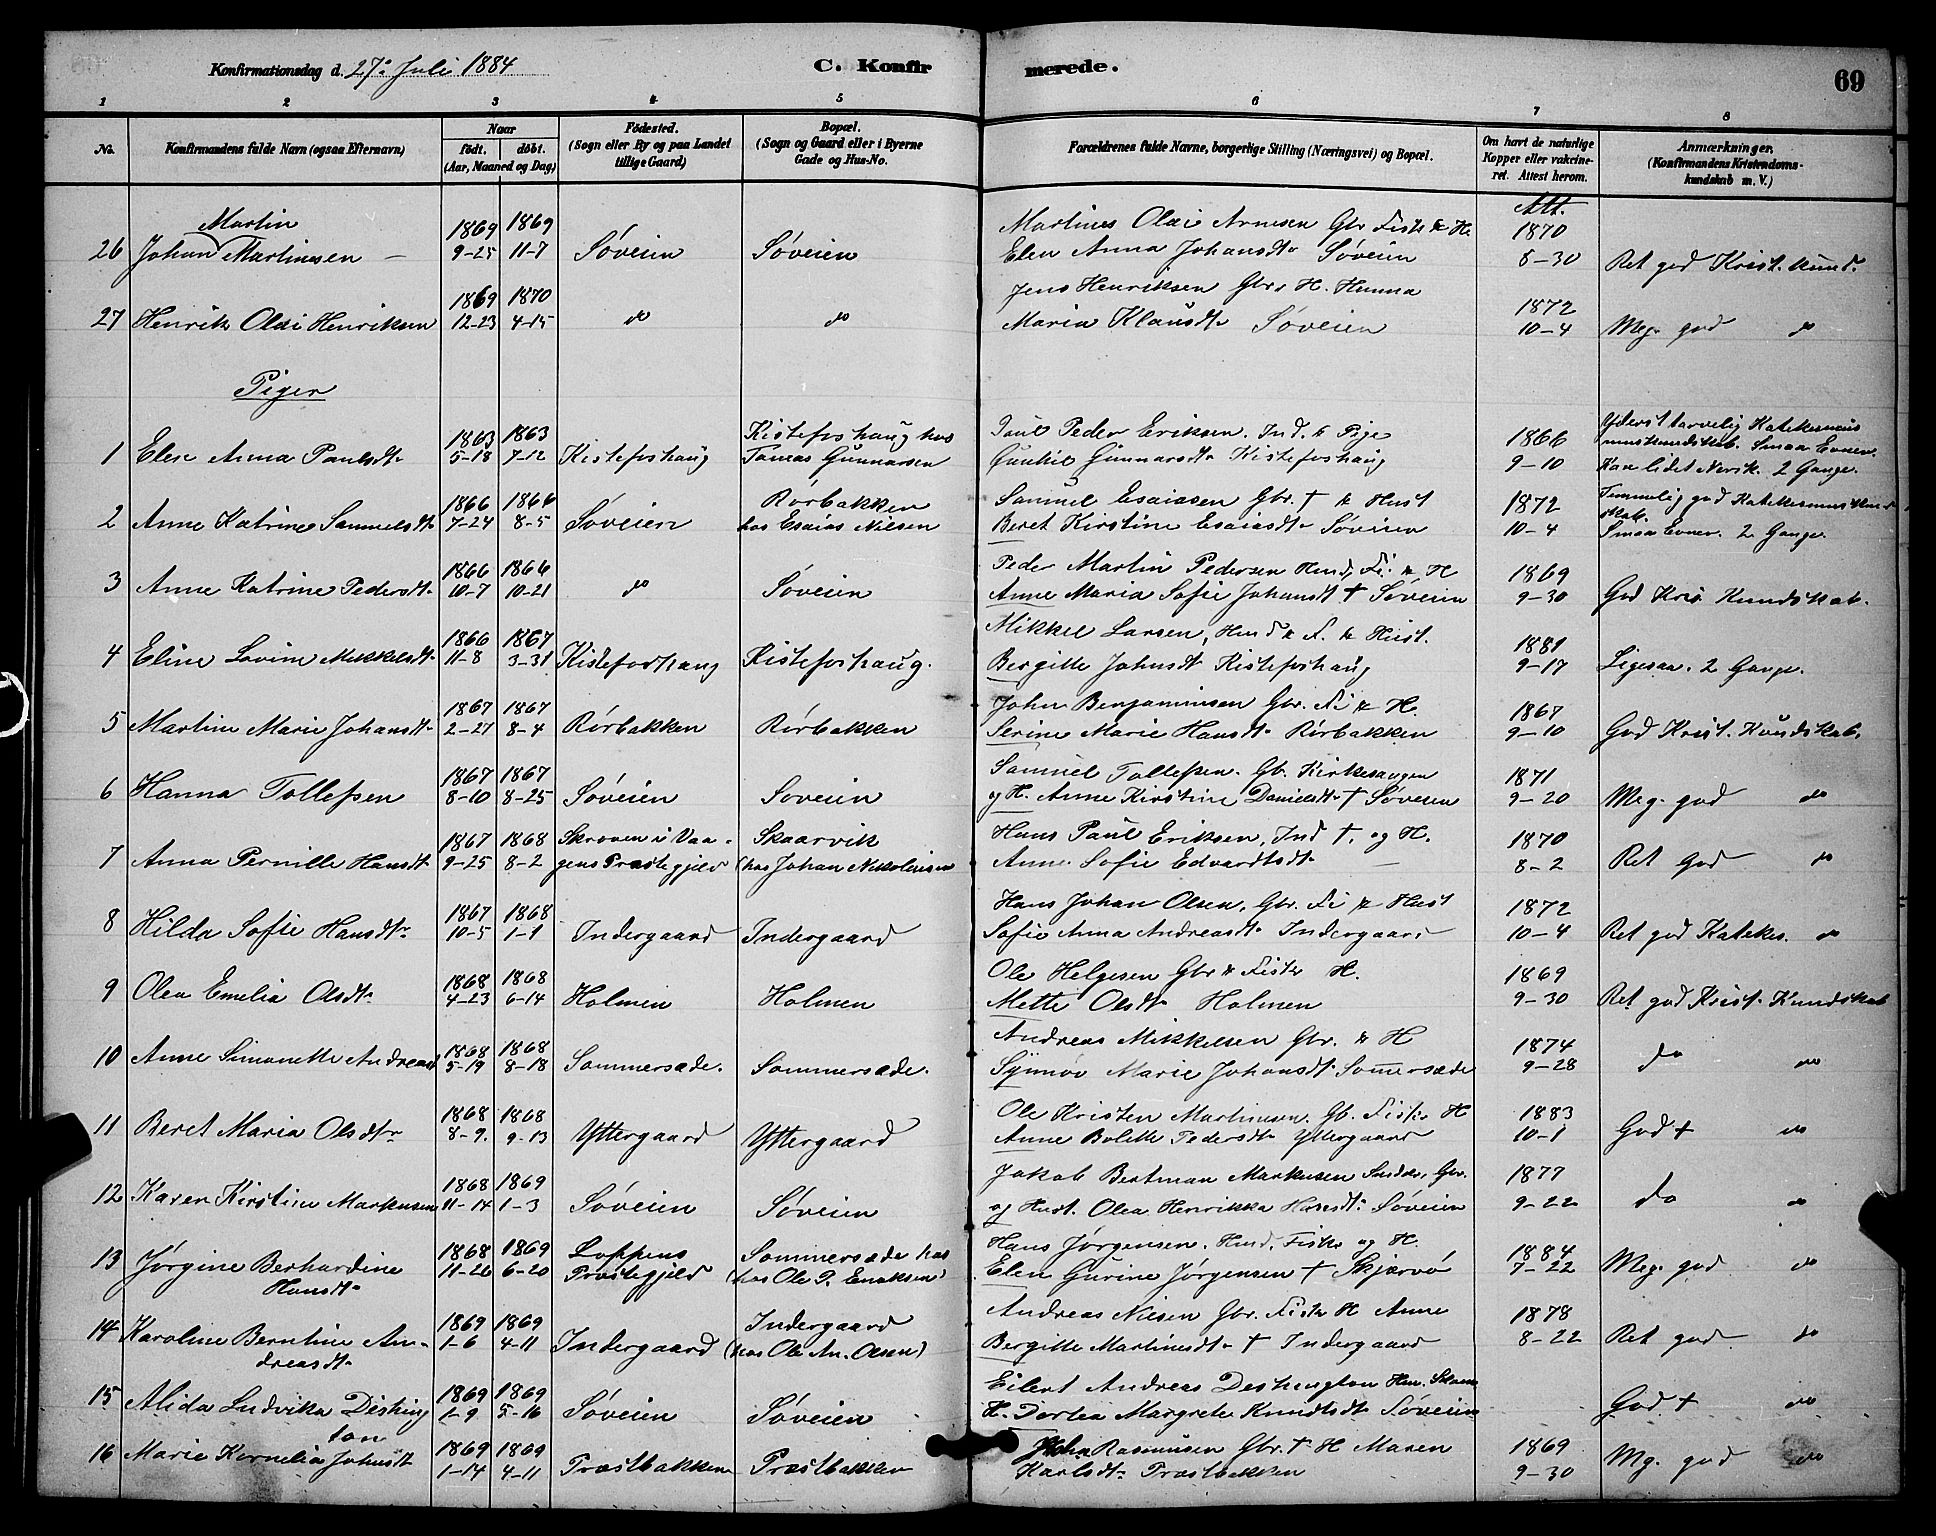 Konfirmationsdag d. 27de Juli 1884
C. Konfirmerede.
69
1 2 3 4 5 6 7 8
No.
Konfirmandens fulde Navn (ogsaa Efternavn)
Naar
født. døbt.
(Aar, Maaned og Dag)
Fødested.
(Sogn eller By og paa Landet
tillige Gaard)
Bopæl.
(Sogn og Gaard eller i Byerne
Gade og Hus-No.
Forældrenes fulde Navne, borgerlige Stilling (Næringsvei) og Bopæl.
Om havt de naturlige
Kopper eller vakcine-
ret. Attest herom.
Anmærkninger,
(Konfirmandens Kristendoms-
kundskab m. V.)
Martin 1869 1869 Martines Olai Arnesen Gbr Fisk & H. Att. 1870
26 Johan Martinesen 9-25 11-7 Søveien Søveien Elen Anna Johansdtr Søveien 8-30 Ret god Krist. kund.
1869 1870 Jens Henriksen Gbr. H. Hanna 1872
27 Henrik Olai Henriksen 12-23 4-15 do do Maria Klausdtr Søveien 10-4 Meg. god do
Piger
1863 1863 Kisteforshaug hos Paul Peder Eriksen. Ind. & Pige 1866 Yderst tarvelig Katekesmus
1 Elen Anna Paulsdtr 5-18 7-12 Kisteforshaug Tomas Gunnarsen Gunhil Gunnarsdtr Kisteforshaug 9-10 kundskab. Smaa Evner.
Kan lidet Norsk. 2 Gange.
1866 1866 Rørbakken Samuel Esaiasen Gbr. † & Hust 1872 Temmelig god Katekesmuskund
2 Anne Katrine Samuelsdtr 7-24 8-5 Søveien hos Esaias Nilsen Beret Kirstine Esaiasdtr Søveien 10-4 skab.
Smaa Evner. 2 Gange.
1866 1866 Peder Martin Pedersen Husmd, Fi. & H 1869
3 Anne Katrine Pedersdtr 10-7 10-21 do Søveien Anne Maria Sofie Johansdt † Søveien 9-30 God Kris Kundskab.
1866 1867 Mikkel Larsen, Husmd & F. & Hust. 1881
4 Eline Lovise Mikkelsdtr 11-8 3-31 Kisteforshaug Kisteforshaug. Bergitte Johnsdt Kisteforshaug 9-17 Ligesaa. 2 Gange.
1867 1867 John Benjaminsen Gbr. Fi & H. 1867
5 Martine Marie Johansdtr 2-27 8-4 Rørbakken Rørbakken Serine Marie Hansdtr Rørbakken 9-10 God Krist. Kundskab.
1867 1867 Samuel Tollefsen. Gb. Kirkesanger 1871
6 Hanna Tollefsen 8-10 8-25 Søveien Søveien og H. Anne Kirstine Danielsdtr † Søveien 9-20 Meg. god do
1867 1868 Skroven i Vaa- Skaarvik Hans Paul Eriksen, Ind †. og H. 1870
7 Anna Pernille Hansdt 9-25 8-2 gens Præstegjeld (hos Johan Nikolaisen Anne Sofie Edvardtsdtr 8-2 Ret God do
1867 1868 Hans Johan Olsen, Gbr. Fi & Hust 1872
8 Hilda Sofie Hansdtr 10-5 1-1 Indergaard Indergaard Sofie Anna Andreasdtr Indergaard 10-4 Ret god Katekes. do
1868 1868 Ole Helgesen Gbr & Fisker H. 1869
9 Olea Emelia Olsdtr 4-23 6-14 Holmen Holmen Mette Olsdt Holmen 9-30 Ret god Krist. Kundskab
1868 1868 Andreas Mikkelsen Gbr. & H 1874
10 Anne Simonette Andreasd 5-19 8-18 Sommersæde. Sommersæde. Synnøv Marie Johansdtr Sommersæde 9-28 do do
1868 1868 Ole Kristen Martinsen. Gb. Fisk. H 1883
11 Beret Maria Olsdtr 8-9. 9-13 Yttergaard Yttergaard Anne Bolette Pedersdtr Yttergaard 10-1 God † do
1868 1869 Jakob Bertman Markusen Gbr. 1877
12 Karen Kirstine Markusen 11-14 1-3 Søveien Søveien og Hust. Olea Henrikka Hansdtr Søveien 9-22 do do
1868 1869 Loppens Sommersæde hos Hans Jørgensen. Husmd. Fisker og H. 1884
13 Jørgine Berhardine 11-26 6-20 Præstegjeld (hos Ole P. Enoksen) Elen Gurine Jørgensen † Skjærvø 7-22 Meg. god do
Hansdtr
1869 1869 Indergaard Andreas Nilsen Gbr. Fisker H Anne 1878
14 Karoline Berntine An- 1-6 4-11 Indergaard (hos Ole An. Olsen) Bergitte Martinesdtr † Indergaard 8-22 Ret god do
dreasdtr
1869 1869 Eilert Andreas Deshington
15 Alida Ludvika Dishing 1-9 5-16 Søveien Søveien H. Dortea Margrete Knudtsdt Søveien God † do
ton
1869 1869 John Rasmusen Gbr. † H Maren 1869
16 Marie Kornelia Johnsdt 1-14 4-11 Præstbakken Præstbakken Karlsdtr Præstbakken 9-30 Mg. god do